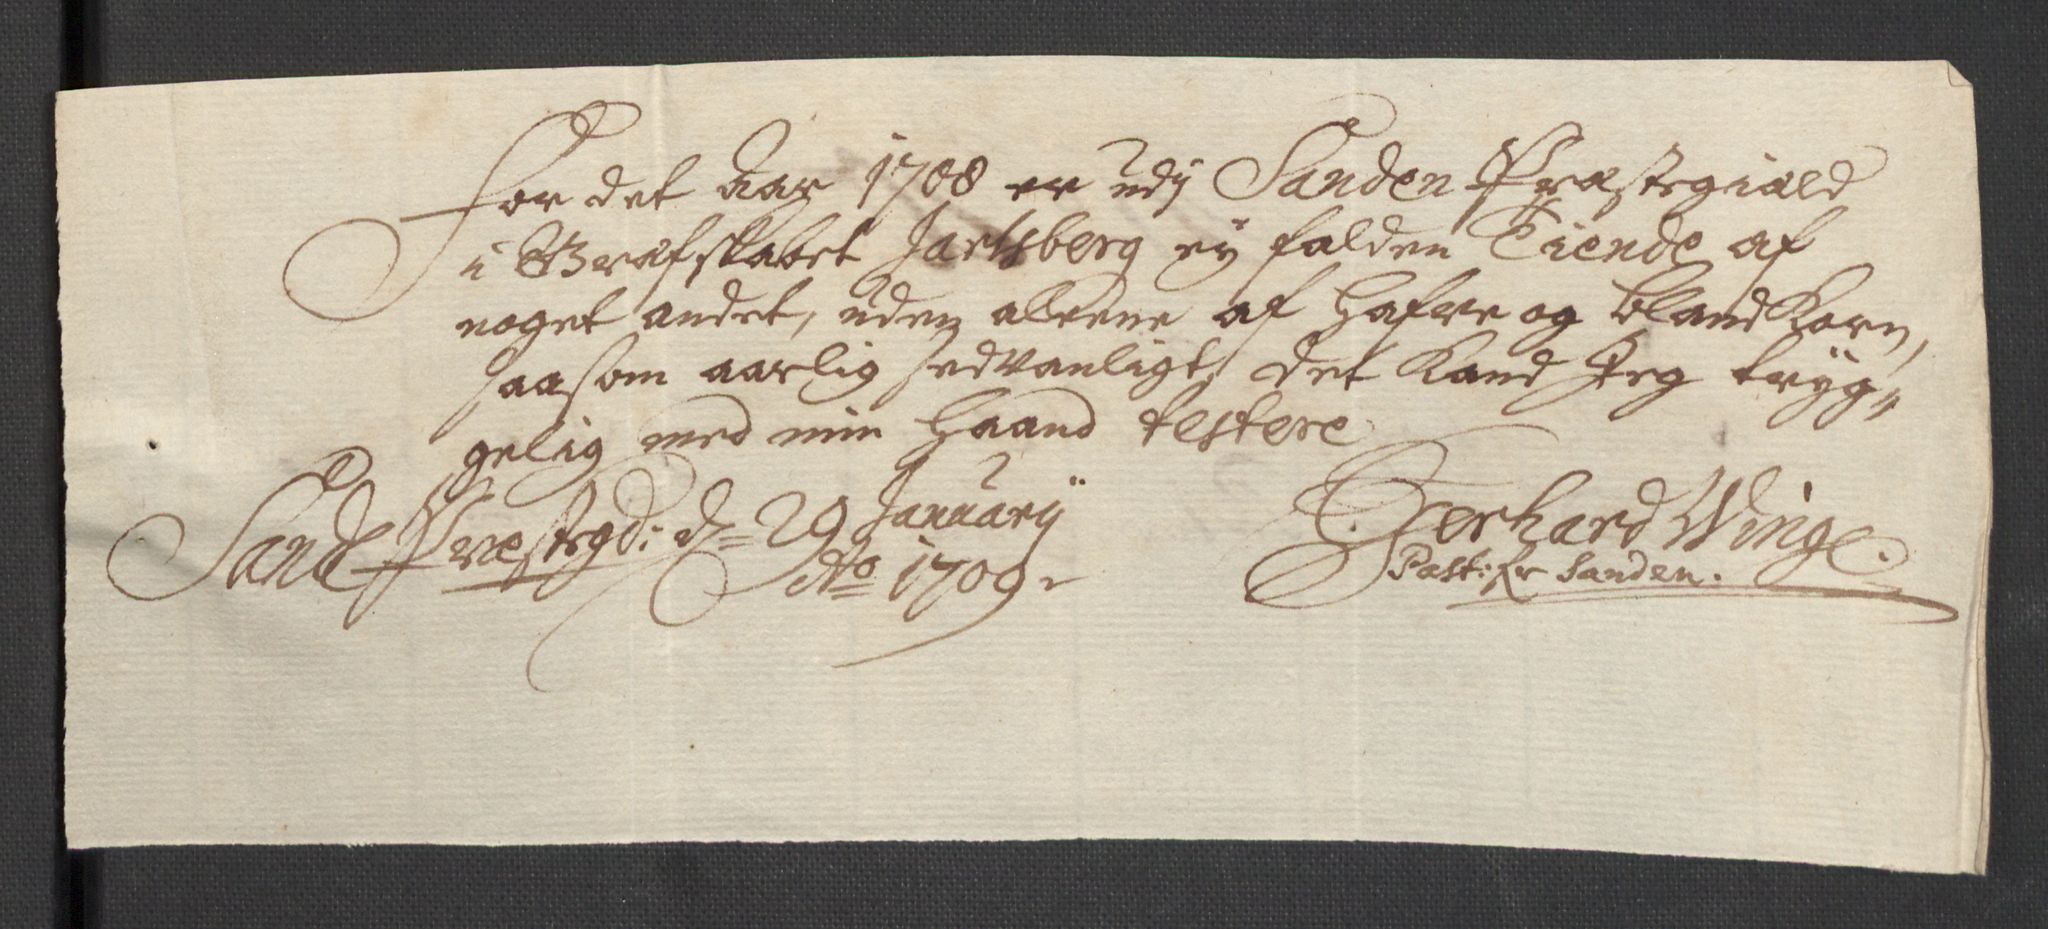 For det Aar 1708 er udj Sanden Præstegiæld
i Grefskabet Jarlsberg ej falden Tiende af
noget andet, uden alleene af Hafre og blandKorn,
saasom aarlig sedvanligt, det Kand Jeg tryg-
gelig med min Haand testere
Sande Præstegd: d= 29 Januarij
Ao 1709.
Gerhard Winge.
Past: Sanden.